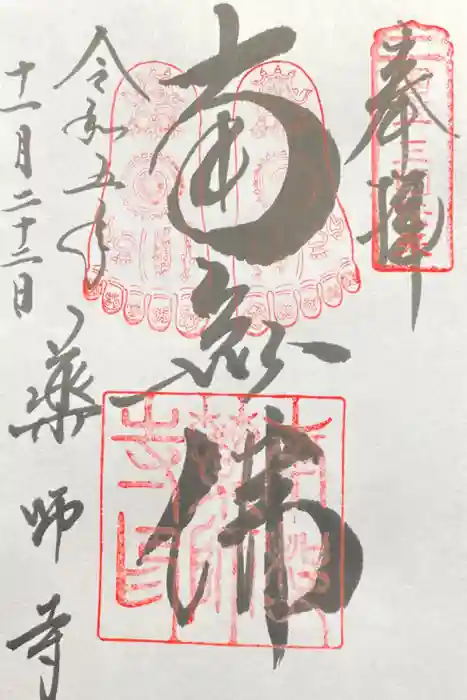 奉拝
南無佛
令和五年
十一月二十三日
薬師寺